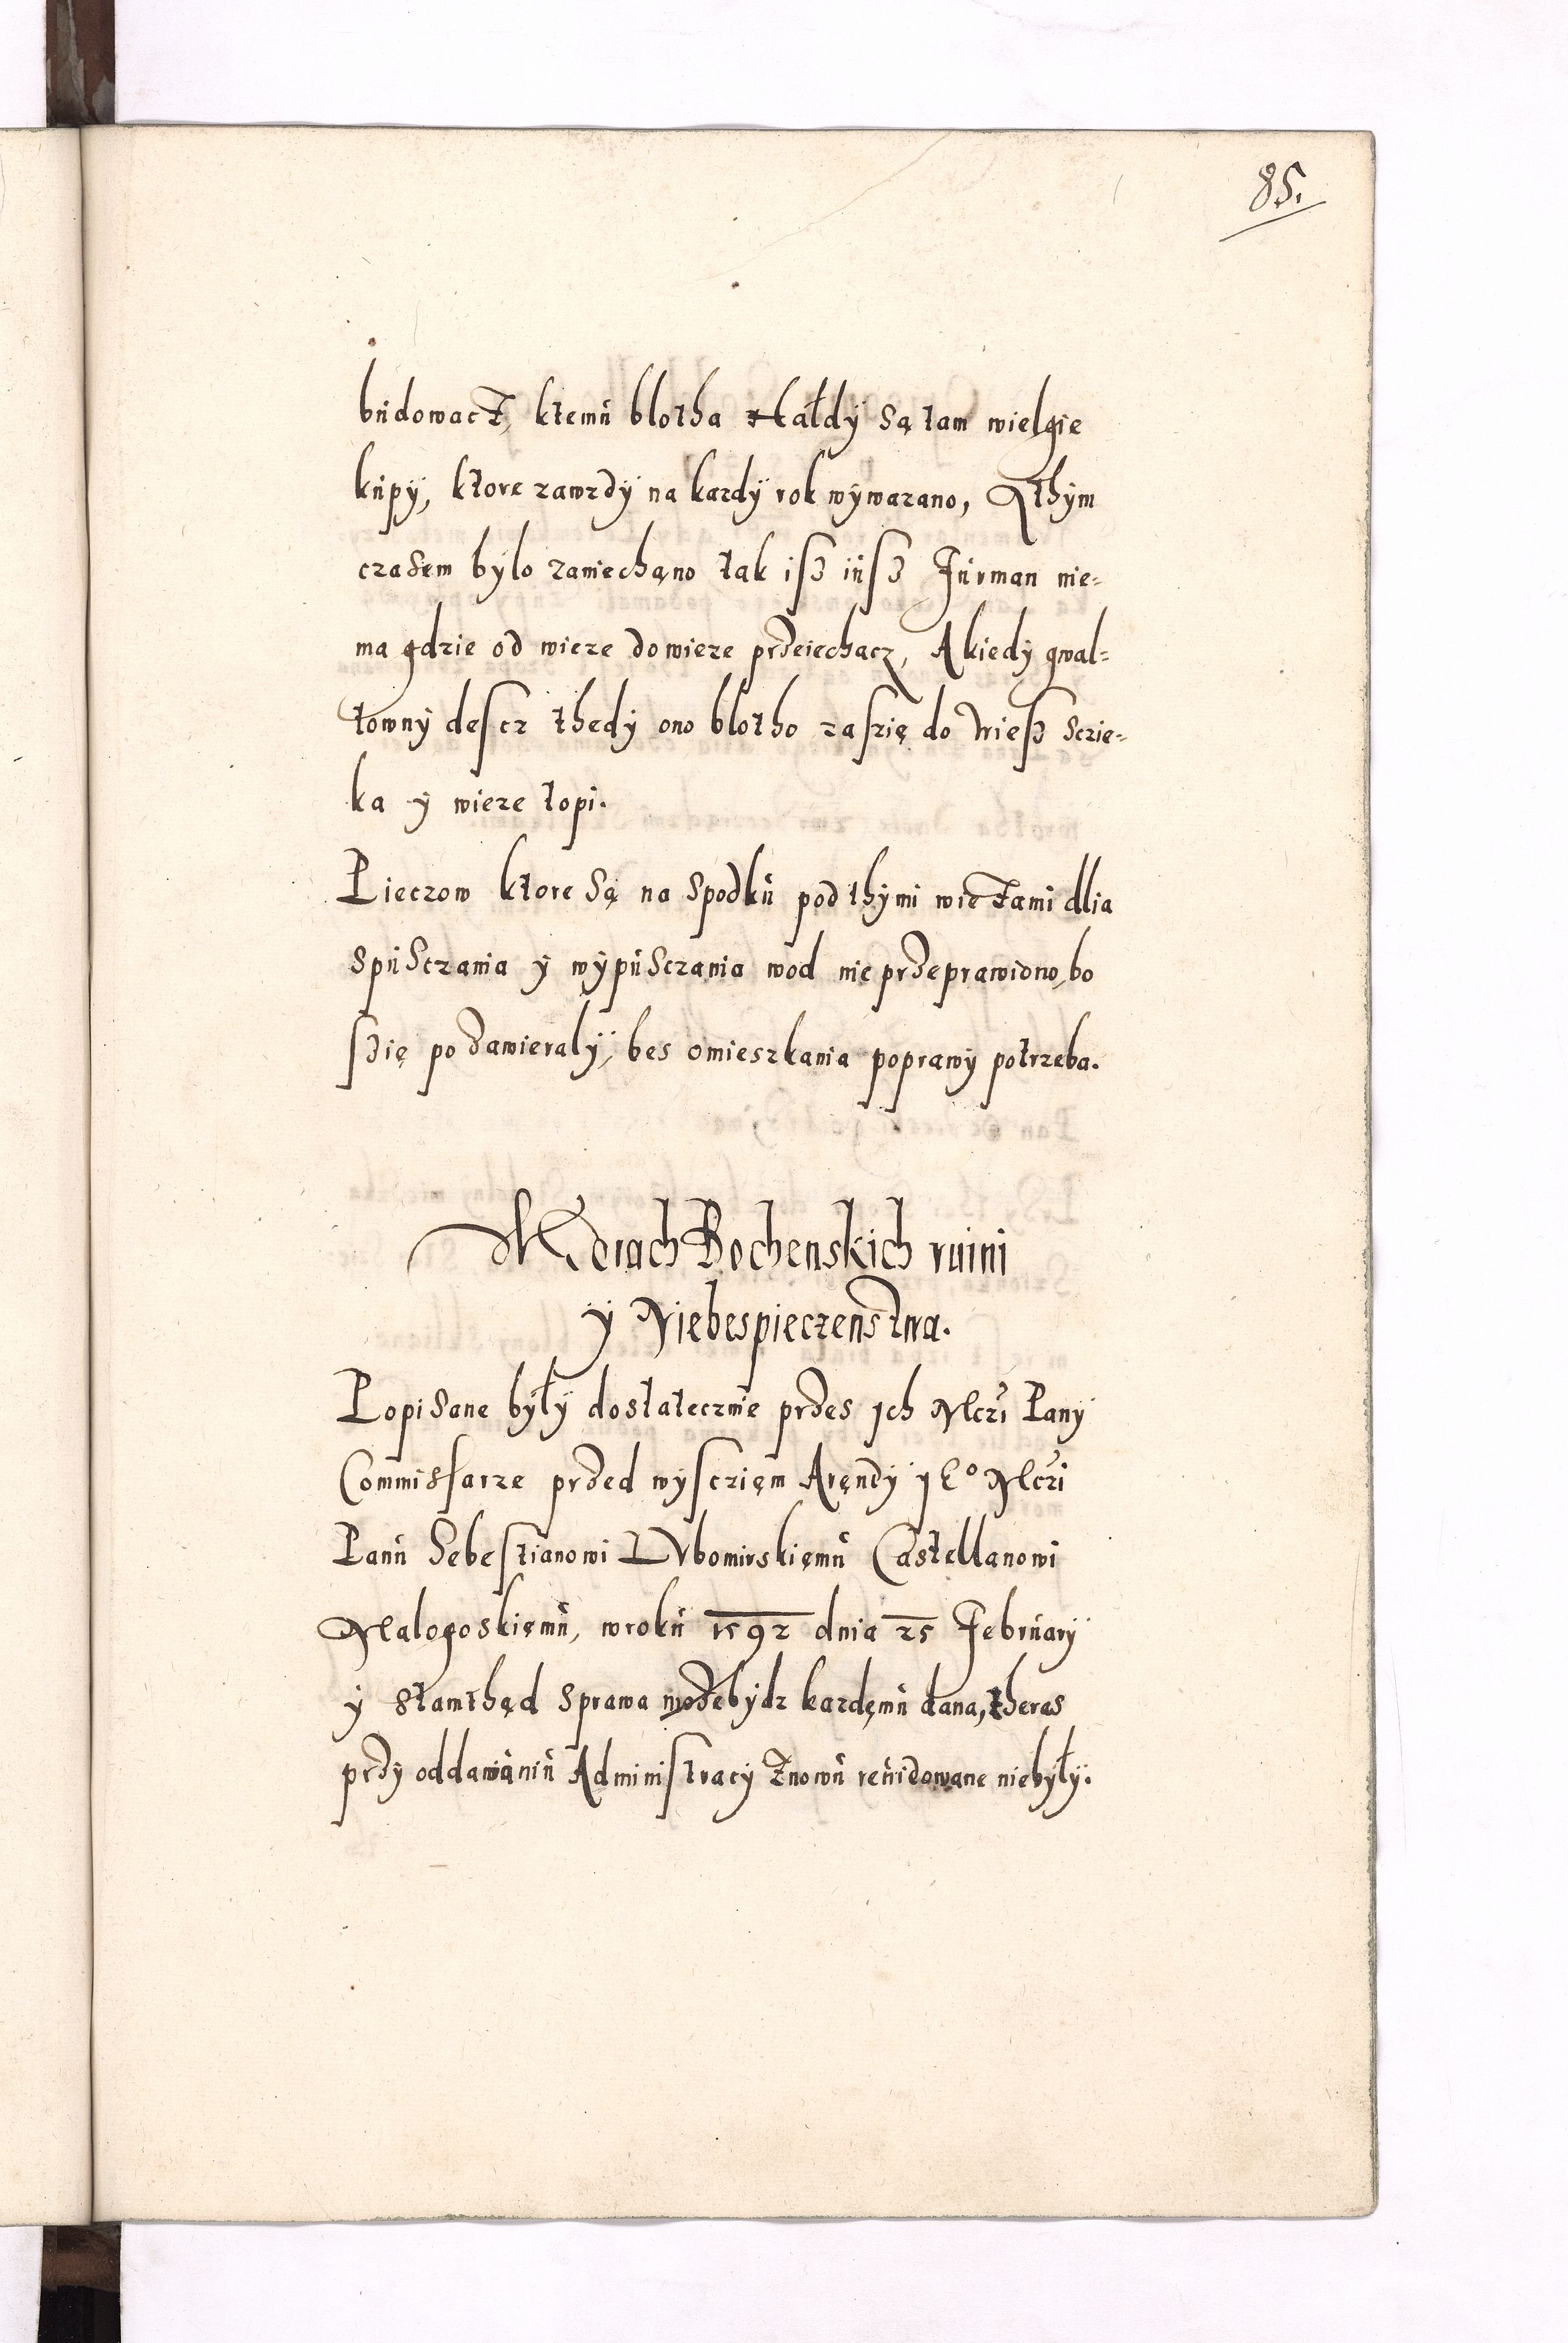 85.
budowacz, ktemu blotha Hałdy są tam wielgie
kupy, ktore zawzdy na kazdy rok wywazano, Zthym
czasem bylo zaniechąno tak isz iusz Furman nie-
ma gdzie od wieze do wieze przeiechacz, A kiedy gwal-
towny descz thedy ono blotho zaszię do wiesz sczie-
ka y wieze topi.
Pieczow ktore Są na Spodku pod thymi wiezami dlia
spusczania y wypusczania wod nie przeprawiono, bo
szię pozawieraly, bes omieszkania poprawy potrzeba.
W Gorach Bochenskich ruini
y Niebespieczenstwa.
Popisane były dostatecznie przes ych Mczi Pany
Commissarze przed wysczięm Aręndy yE° Mczi
Panu Sebestianowi Lvbomirskięmu Castellanowi
Malogoskięmu, wroku 1592 dnia 25 February
y stamthąd sprawa możebydz kazdęmu dana, theras
przy oddawąniu Administracy znowu reuidowane niebyły.